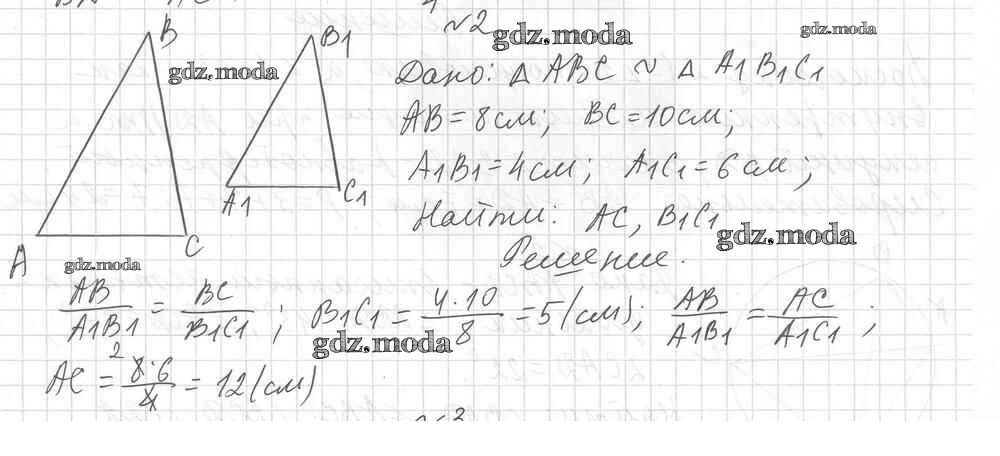 №2
gdz.moda
gdz.moda
B
B1
gdz.moda
Дано: Δ ABC ~ Δ A1B1C1
AB = 8 см; BC = 10 см;
A1B1 = 4 см; A1C1 = 6 см;
A1
C1
Найти: AC, B1C1
gdz.moda
A
C
Решение.
gdz.moda
AB/A1B1 = BC/B1C1; B1C1 = 4·10/8 = 5 (см); AB/A1B1 = AC/A1C1;
gdz.moda
AC = 8·6/4 2 = 12 (см)
№3